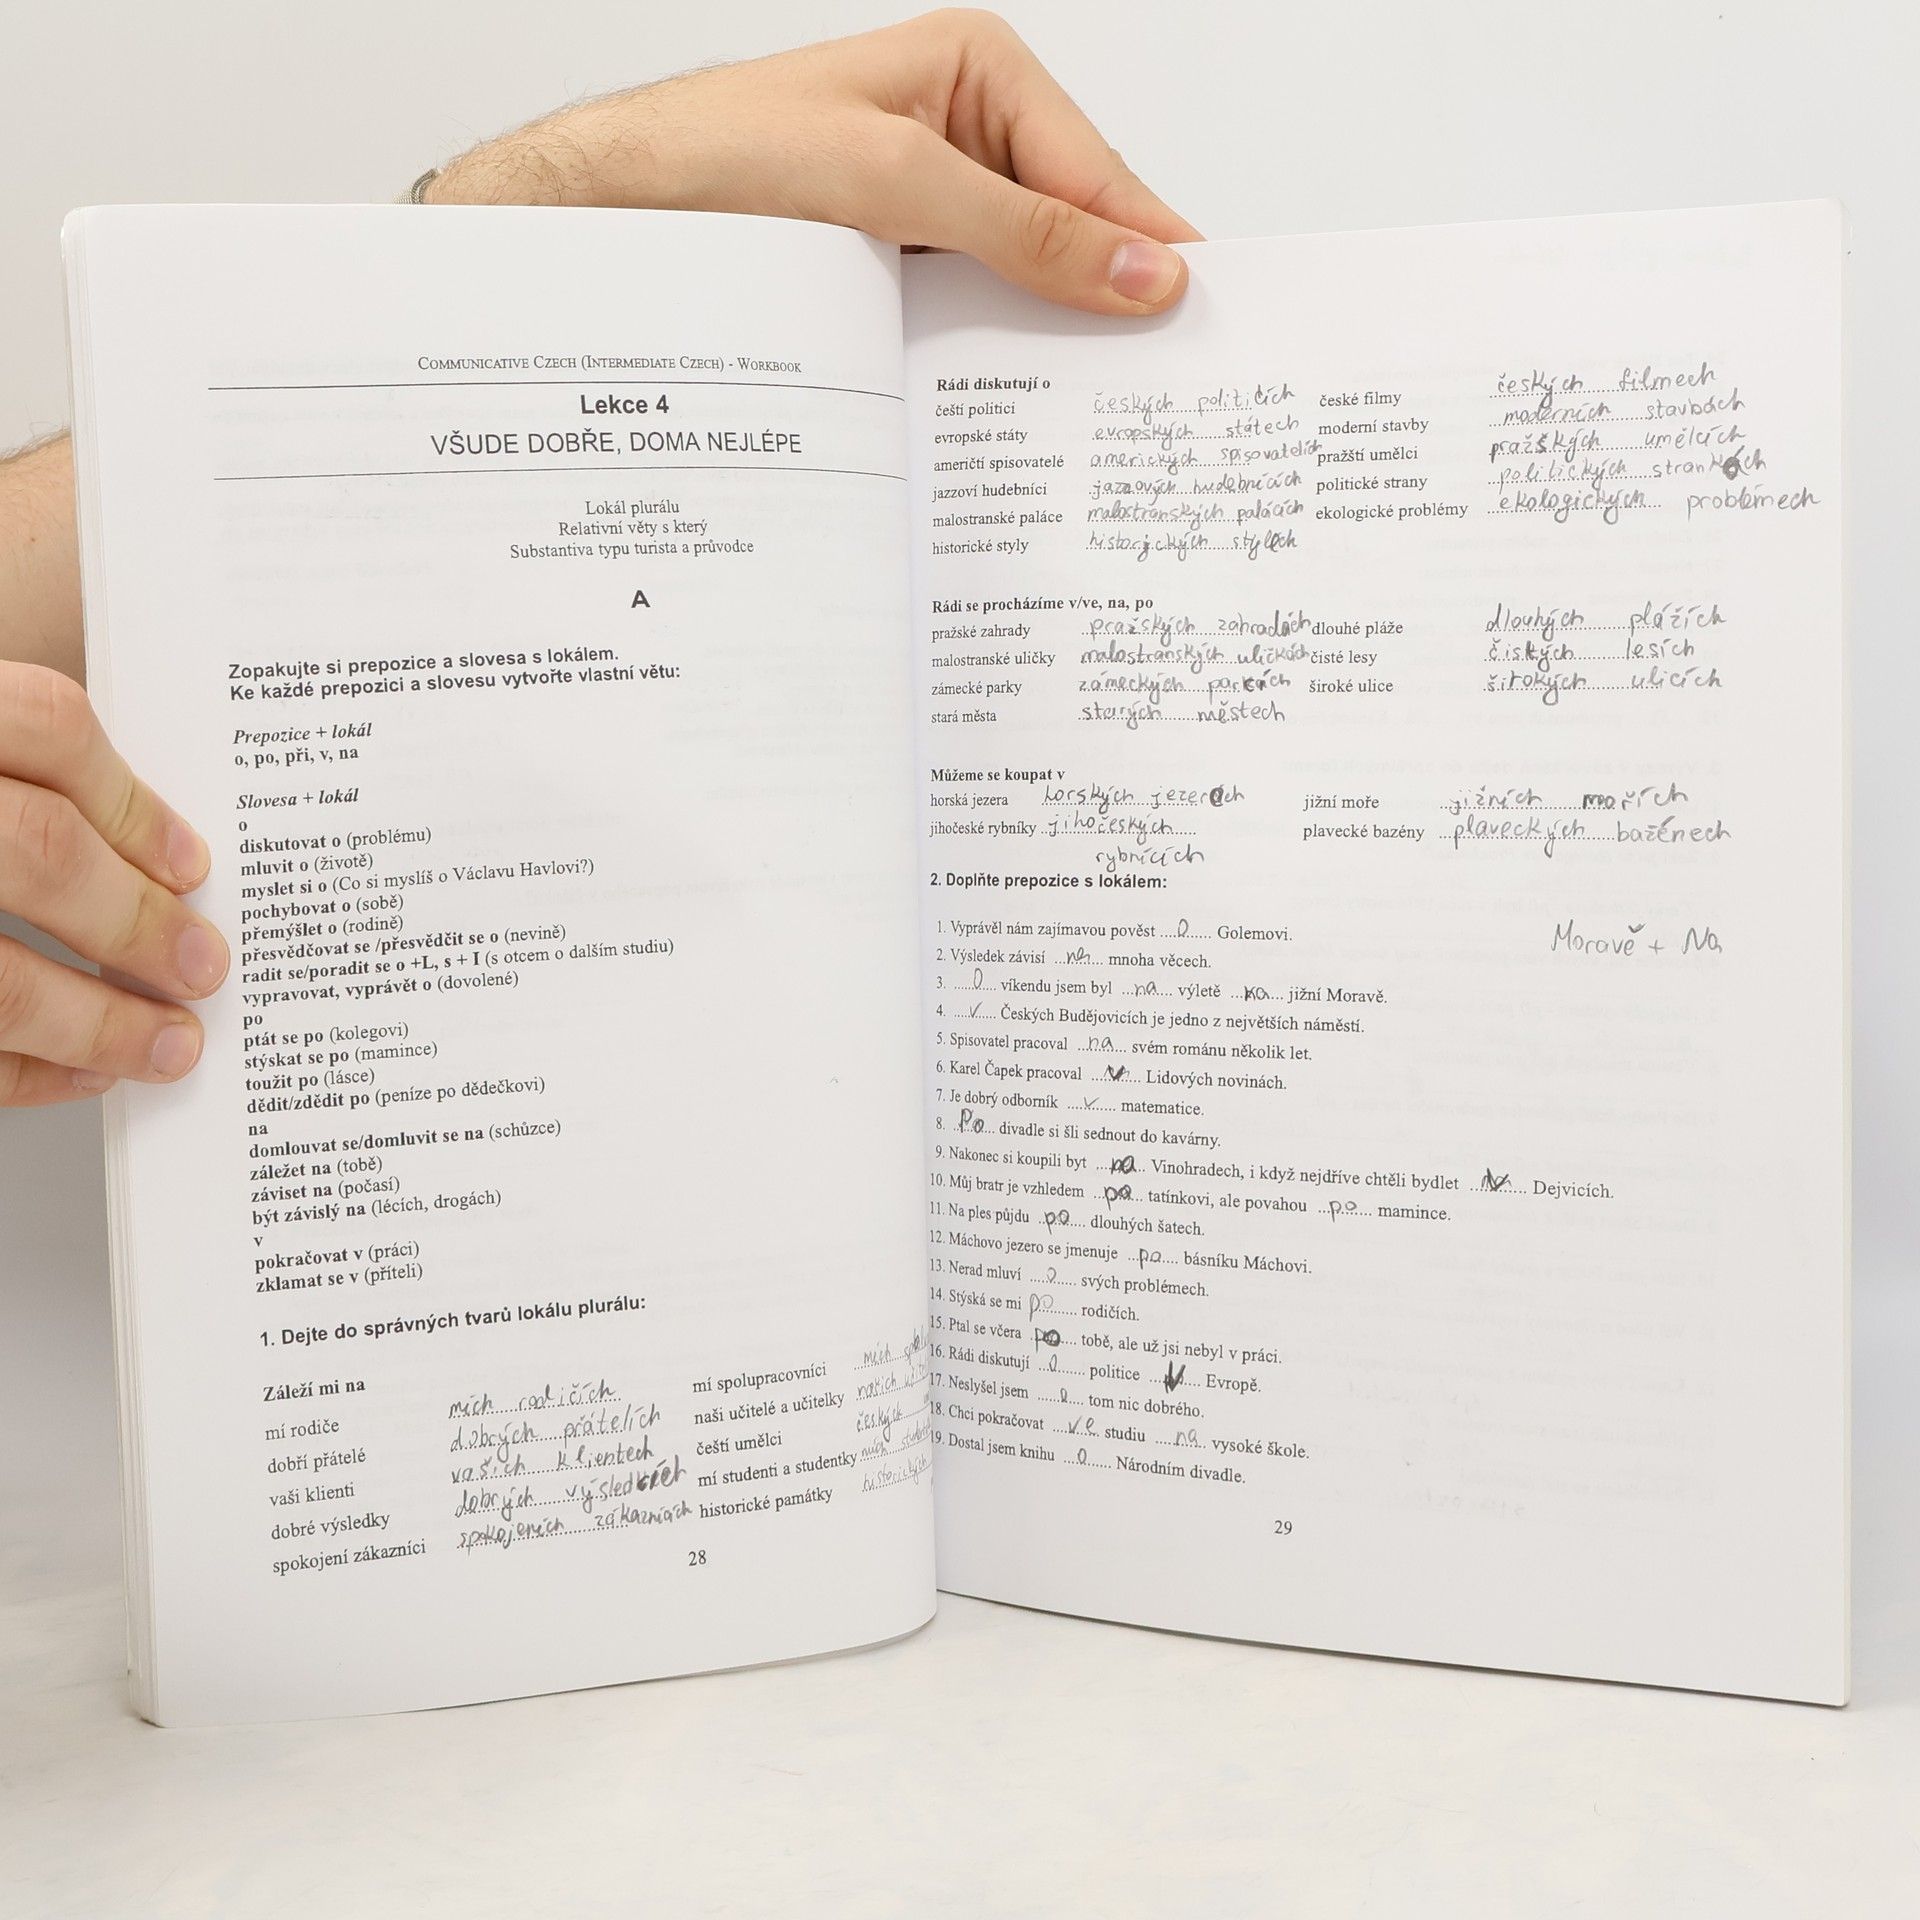 COMMUNICATIVE CZECH (INTERMEDIATE CZECH) - WORKBOOK
Lekce 4
VŠUDE DOBŘE, DOMA NEJLÉPE
Lokál plurálu
Relativní věty s který
Substantiva typu turista a průvodce
A
Zopakujte si prepozice a slovesa s lokálem.
Ke každé prepozici a slovesu vytvořte vlastní větu:
Prepozice + lokál
o, po, při, v, na
Slovesa + lokál
o
diskutovat o (problému)
mluvit o (životě)
myslet si o (Co si myslíš o Václavu Havlovi?)
pochybovat o (sobě)
přemýšlet o (rodině)
přesvědčovat se /přesvědčit se o (nevině)
radit se/poradit se o +L, s + I (s otcem o dalším studiu)
vypravovat, vyprávět o (dovolené)
po
ptát se po (kolegovi)
stýskat se po (mamince)
toužit po (lásce)
dědit/zdědit po (peníze po dědečkovi)
na
domlouvat se/domluvit se na (schůzce)
záležet na (tobě)
záviset na (počasí)
být závislý na (lécích, drogách)
v
pokračovat v (práci)
zklamat se v (příteli)
1. Dejte do správných tvarů lokálu plurálu:
Záleží mi na
mí rodiče mích rodičích mí spolupracovníci mích
dobří přátelé dobrých přátelích naši učitelé a učitelky našich
vaši klienti vašich klientech čeští umělci českých
dobré výsledky dobrých výsledcích mí studenti a studentky mích
spokojení zákazníci spokojeních zákaznících historické památky historických
28
Rádi diskutují o
čeští politici českých politicích české filmy českých filmech
evropské státy evropských státech moderní stavby moderních stavbách
američtí spisovatelé amerických spisovatelích pražští umělci pražských umělcích
jazzoví hudebníci jazzových hudebnících politické strany politických stranách
malostranské paláce malostranských palácích ekologické problémy ekologických problémech
historické styly historických stylech
Rádi se procházíme v/ve, na, po
pražské zahrady pražských zahradách dlouhé pláže dlouhých plážích
malostranské uličky malostranských uličkách čisté lesy čiských lesích
zámecké parky zámeckých parcích široké ulice širokých ulicích
stará města starých městech
Můžeme se koupat v
horská jezera horských jezerech jižní moře jižních mořích
jihočeské rybníky jihočeských plavecké bazény plaveckých bazénech
rybnících
2. Doplňte prepozice s lokálem:
1. Vyprávěl nám zajímavou pověst ....O...... Golemovi.
2. Výsledek závisí ...na.... mnoha věcech.
Moravě + Na
3. ....O..... víkendu jsem byl ...na.... výletě ...na.... jižní Moravě.
4. ....v..... Českých Budějovicích je jedno z největších náměstí.
5. Spisovatel pracoval ...na.... svém románu několik let.
6. Karel Čapek pracoval ....v.... Lidových novinách.
7. Je dobrý odborník ....v..... matematice.
8. .Po.... divadle si šli sednout do kavárny.
9. Nakonec si koupili byt ....na.. Vinohradech, i když nejdříve chtěli bydlet ....v.... Dejvicích.
10. Můj bratr je vzhledem ...po.... tatínkovi, ale povahou ...po.... mamince.
11. Na ples půjdu ...po.... dlouhých šatech.
12. Máchovo jezero se jmenuje ...po.... básníku Máchovi.
13. Nerad mluví ....o..... svých problémech.
14. Stýská se mi po...... rodičích.
15. Ptal se včera .po..... tobě, ale už jsi nebyl v práci.
16. Rádi diskutují ...o..... politice ....V.... Evropě.
17. Neslyšel jsem .....o.... tom nic dobrého.
18. Chci pokračovat ...ve.... studiu ....na... vysoké škole.
19. Dostal jsem knihu ....o..... Národním divadle.
29